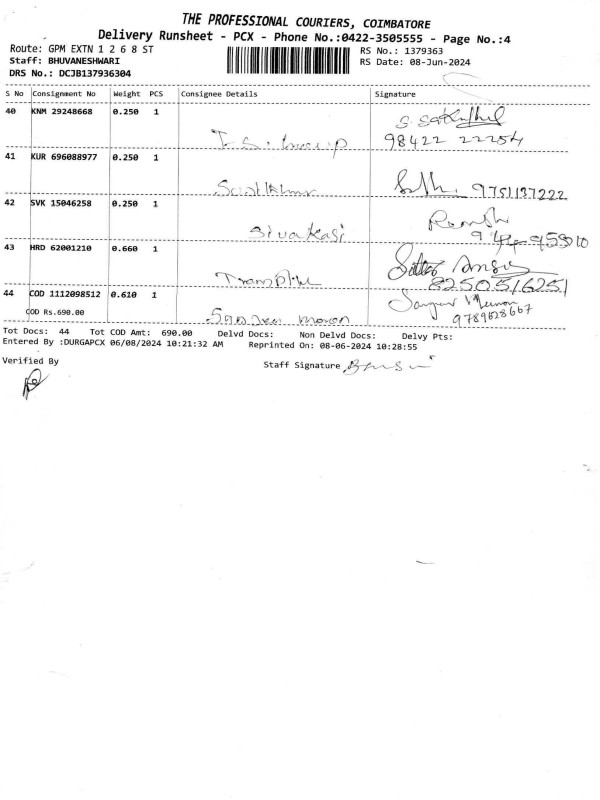 THE PROFESSIONAL COURIERS, COIMBATORE
Delivery Runsheet - PCX - Phone No.:0422-3505555 - Page No.:4
Route: GPM EXTN 1 2 6 8 ST RS No.: 1379363
Staff: BHUVANESHWARI RS Date: 08-Jun-2024
DRS No.: DCJB137936304
S No Consignment No Weight PCS Consignee Details Signature
40 KNM 29248668 0.250 1
98422 22254
41 KUR 696088977 0.250 1
9751137222
42 SVK 15046258 0.250 1
Sivakasi
43 HRD 62001210 0.660 1
8250516251
44 COD 1112098512 0.610 1
COD Rs.690.00
9789628667
Tot Docs: 44 Tot COD Amt: 690.00 Delvd Docs: Non Delvd Docs: Delvy Pts:
Entered By :DURGAPCX 06/08/2024 10:21:32 AM Reprinted On: 08-06-2024 10:28:55
Verified By
Staff Signature